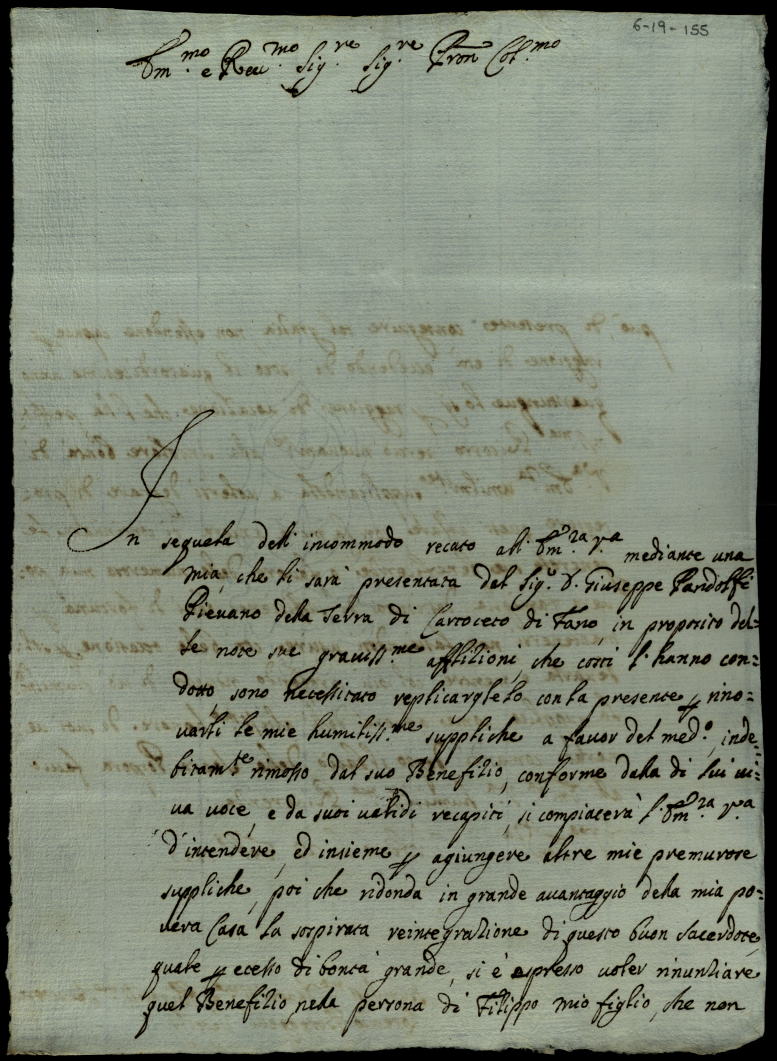 6-19-155
Em.mo e Reu.mo Sig.re Sig.re Pron Col.mo
In sequela dell'incommodo recato all'Em.za V.a mediante una
mia, che li sarà presentata dal Sig.r D. Giuseppe Pandolfi
Pievano della Terra di Cartoceto di Fano, in proposito del=
le note sue graviss.me afflitioni, che costì l'hanno con=
dotto, sono necessitato replicarglelo con la presente p rino=
varli le mie humiliss.me suppliche a favor del med.o, inde=
bitam.te rimosso dal suo Benefitio, conforme dalla di lui ui=
ua voce, e da suoi ualidi recapiti, si compiacerà l'Em.za V.a
d'intendere, ed insieme p agiungere altre mie premurose
suppliche, poi che ridonda in grande auantaggio della mia po=
uera Casa la sospirata reintegratione di questo buon Sacerdote,
quale p ecesso di bontà grande, si è espresso uoler rinuntiare
quel Benefitio nella persona di Filippo mio figlio, che non